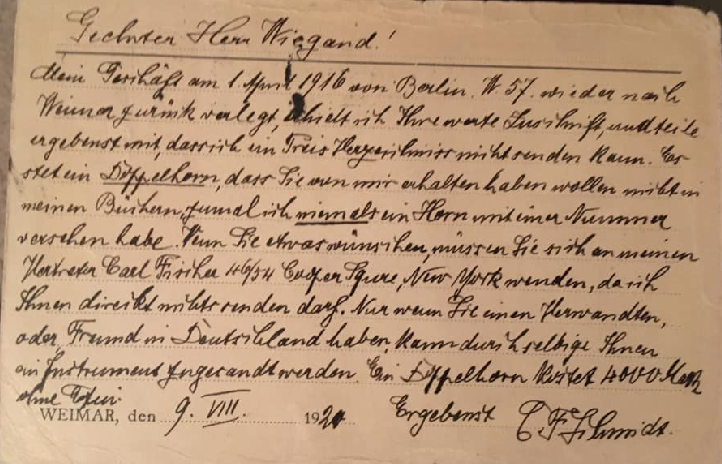 Geehrter Herr Wiegand!
Mein Geschäft am 1. April 1916 von Berlin. W. 57. wieder nach
Weimar zurück verlegt, erhielt ich Ihre werte Zuschrift, und teile
ergebenst mit, dass ich ein Preis Verzeichniss nicht senden kann. Es
stet ein Doppelhorn, dass Sie von mir erhalten haben wollen nicht in
meinen Büchern, zumal ich niemals ein Horn mit einer Nummer
versehen habe. Wenn Sie etwas wünschen, müssen Sie sich an meinen
Vertreter Carl Fischer 46/54 Cooper Squre, New York wenden, da ich
Ihnen direkt nichts senden darf. Nur wenn Sie einen Verwandten,
oder Freund in Deutschland haben, kann durch selbige Ihnen
ein Instrument zugesandt werden. Ein Doppelhorn kostet 4000 Mark
ohne
WEIMAR, den 9. VIII. 1920 Ergebenst C. F. Schmidt.